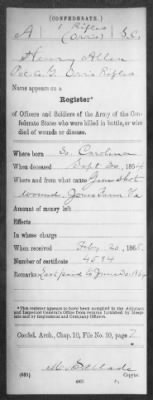 (CONFEDERATE.)
A 1 Rifles S.C.
(Orr's)
Henry Allen
Pvt Co. G. Orr's Rifles
Name appears on a
Register*
of Officers and Soldiers of the Army of the Confederate States who were killed in battle, or who died of wounds or disease.
Where born So. Carolina
When deceased Sept 30, 1864
Where and from what cause Gun Shot
wound. Jones Farm Va
Amount of money left
Effects
In whose charge
When received Feby 20, 1865
Number of certificate 4594
Remarks: Last paid to June 30, 1864
Confed. Arch., Chap. 10, File No. 10, page 2
Copyist.